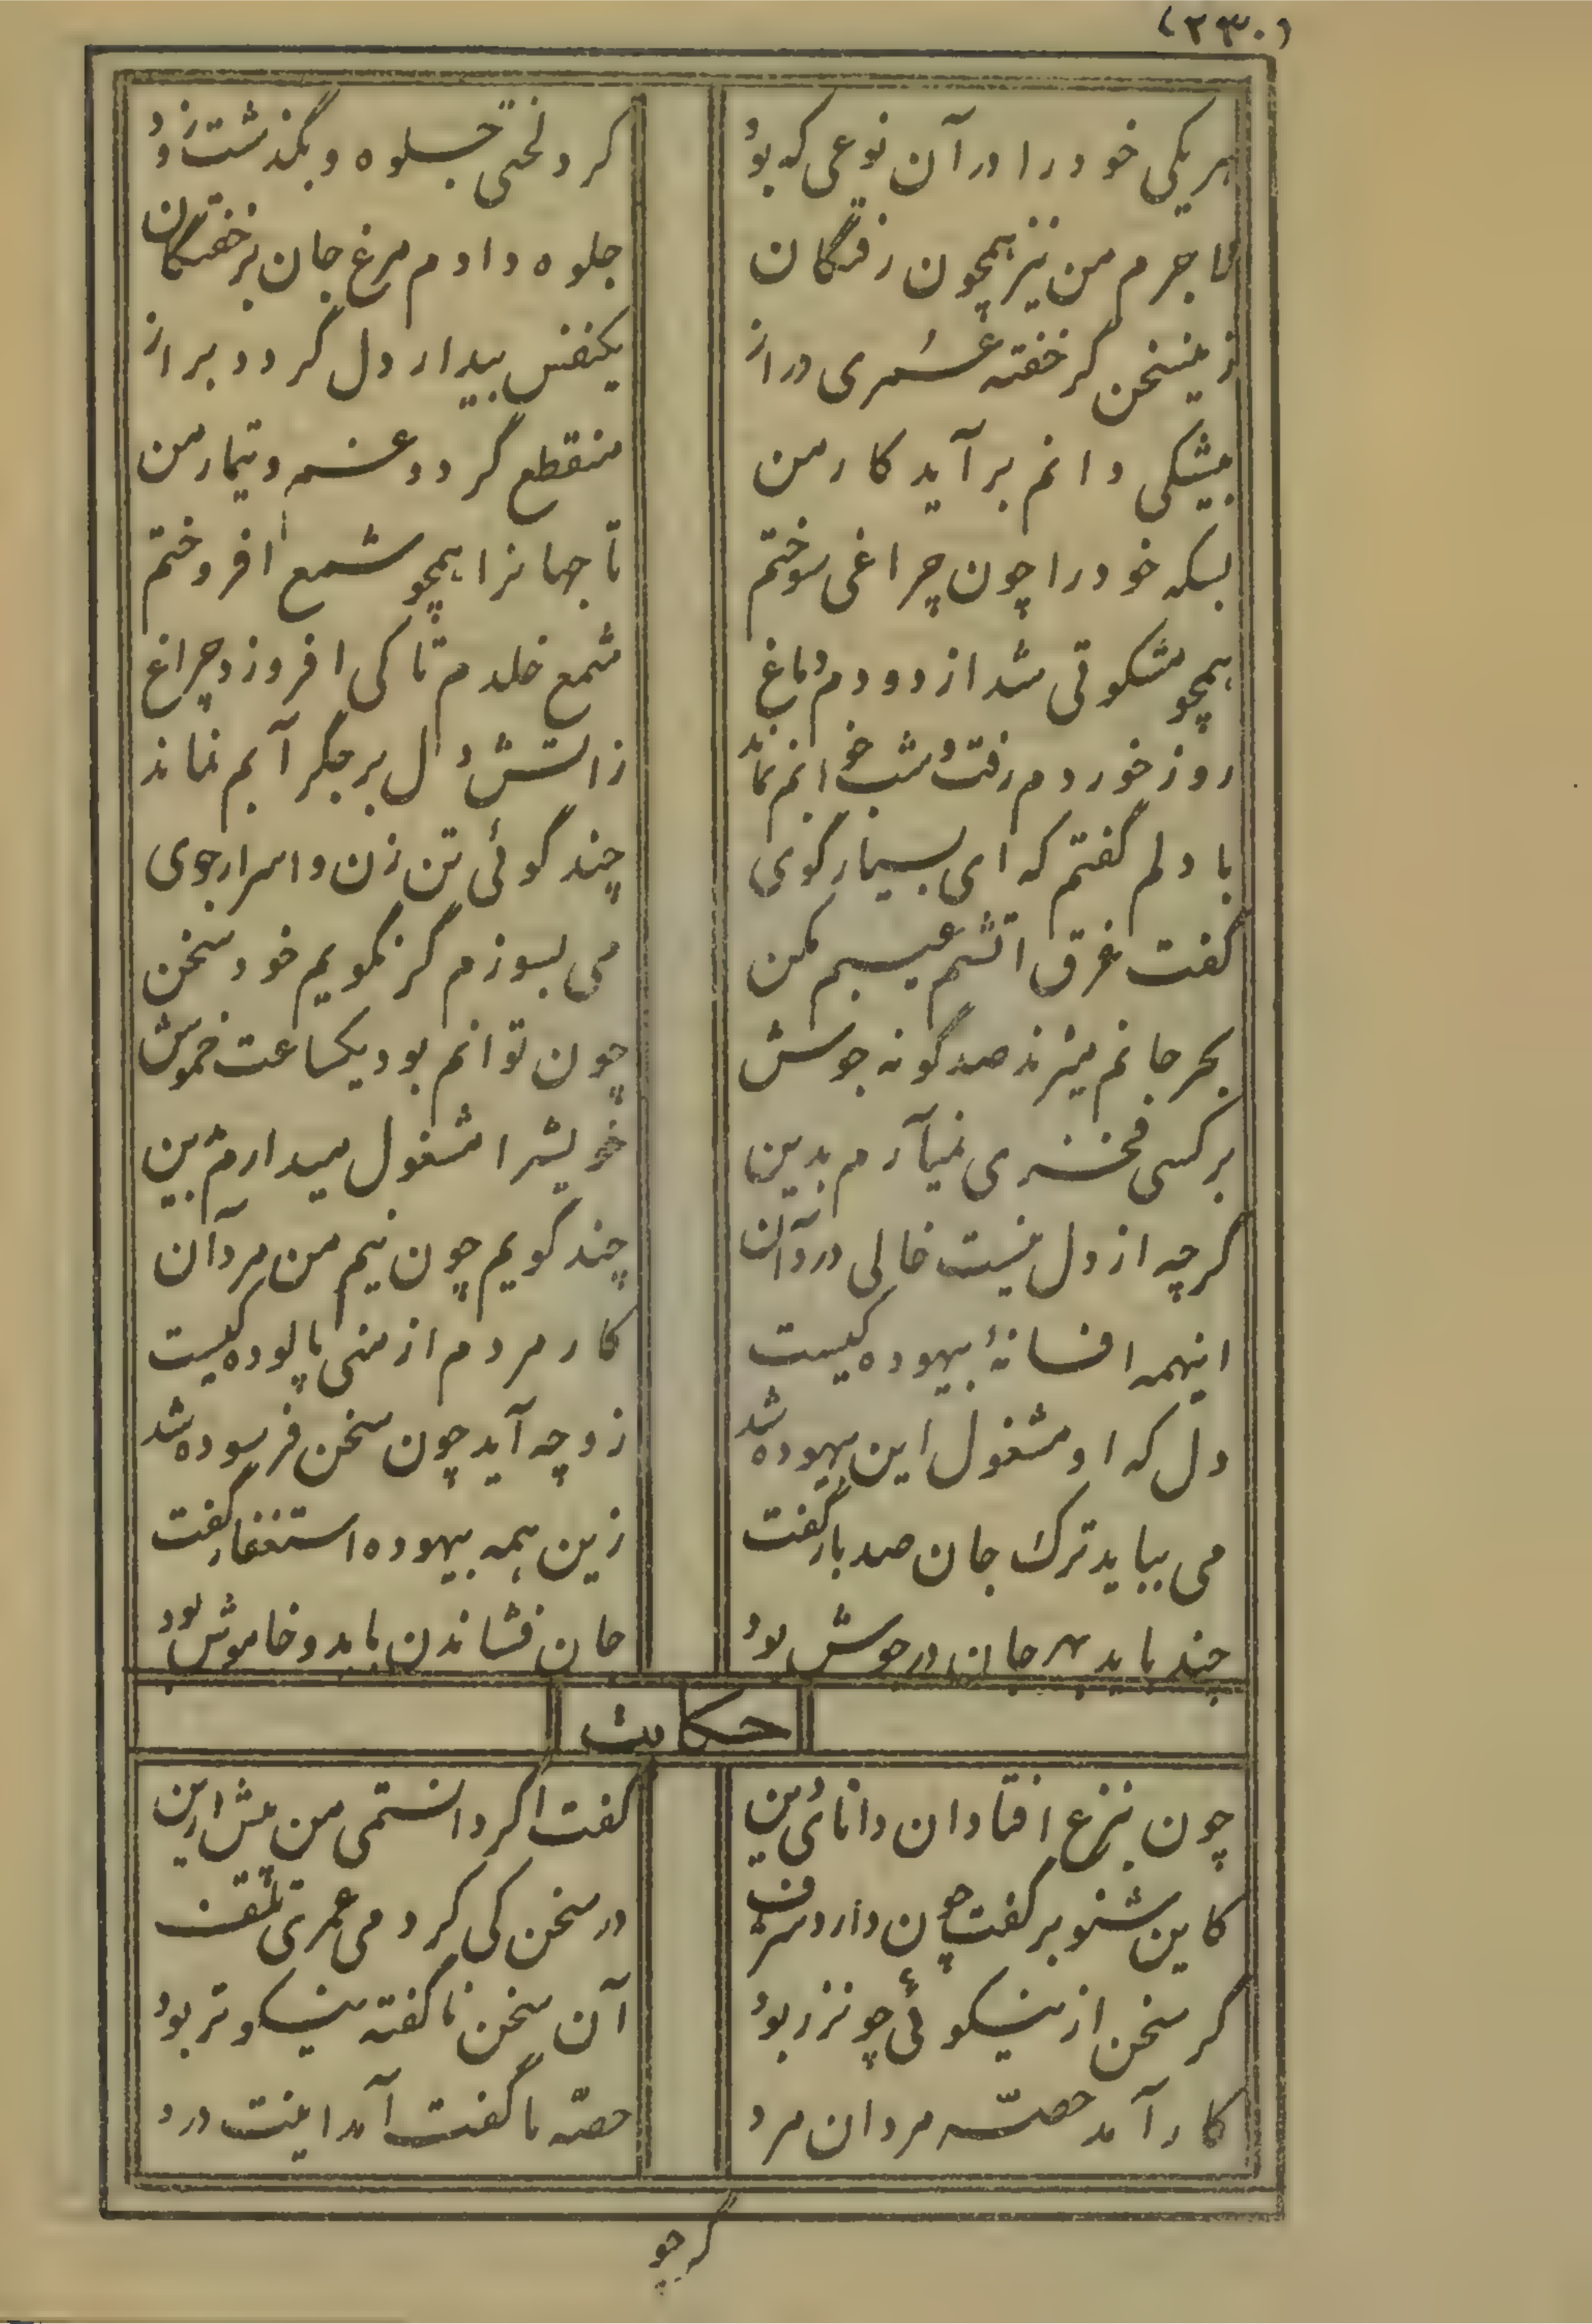 (۲۳۰)
هر یکی خود را در آن نوعی که بود
کرد لختی جلوه و بگذشت زود
لاجرم من نیز همچون رفتگان
جلوه دادم مرغ جان بر خفتگان
زین سخن گر خفته عمری دراز
یکنفس بیدار دل گردد براز
بیشکی دانم برآید کار من
منقطع گردد غم و تیمار من
بسکه خود را چون چراغی سوختم
تا جهانرا همچو شمع افروختم
همچو مشکوتی شد از دودم دماغ
شمع خلدم تا کی افروزد چراغ
روز خوردم رفت و شب خوابم نماند
زاتش دل بر جگر آبم نماند
با دلم گفتم که ای بسیار گوی
چند گوئی تن زن و اسرار جوی
گفت غرق اتشم عیبم مکن
می بسوزم گر نگویم خود سخن
بحر جانم میزند صد گونه جوش
چون توانم بود یکساعت خموش
بر کسی فخری نمیآرم بدین
خویشرا مشغول میدارم بین
گرچه از دل نیست خالی درد آن
چند گویم چون نیم من مرد آن
اینهمه افسانهٔ بیهوده کیست
کار مردم از منی پالوده کیست
دل که او مشغول این بیهوده شد
زو چه آید چون سخن فرسوده شد
می بباید ترک جان صد بار گفت
زین همه بیهوده استغفار گفت
چند باید بهر جان در جوش بود
جان فشاندن باید و خاموش بود
حکایت
چون بنزع افتاد ان دانای دین
گفت اگر دانستمی من پیش ازین
کاین شنو بر گفت چون دارد شرف
در سخن کی کردمی عمری تلف
گر سخن از نیکوئی چون زر بود
آن سخن ناگفته نیکوتر بود
کار آمد حصّه مردان مرد
حصّه ما گفت آمد اینت درد
گر چو